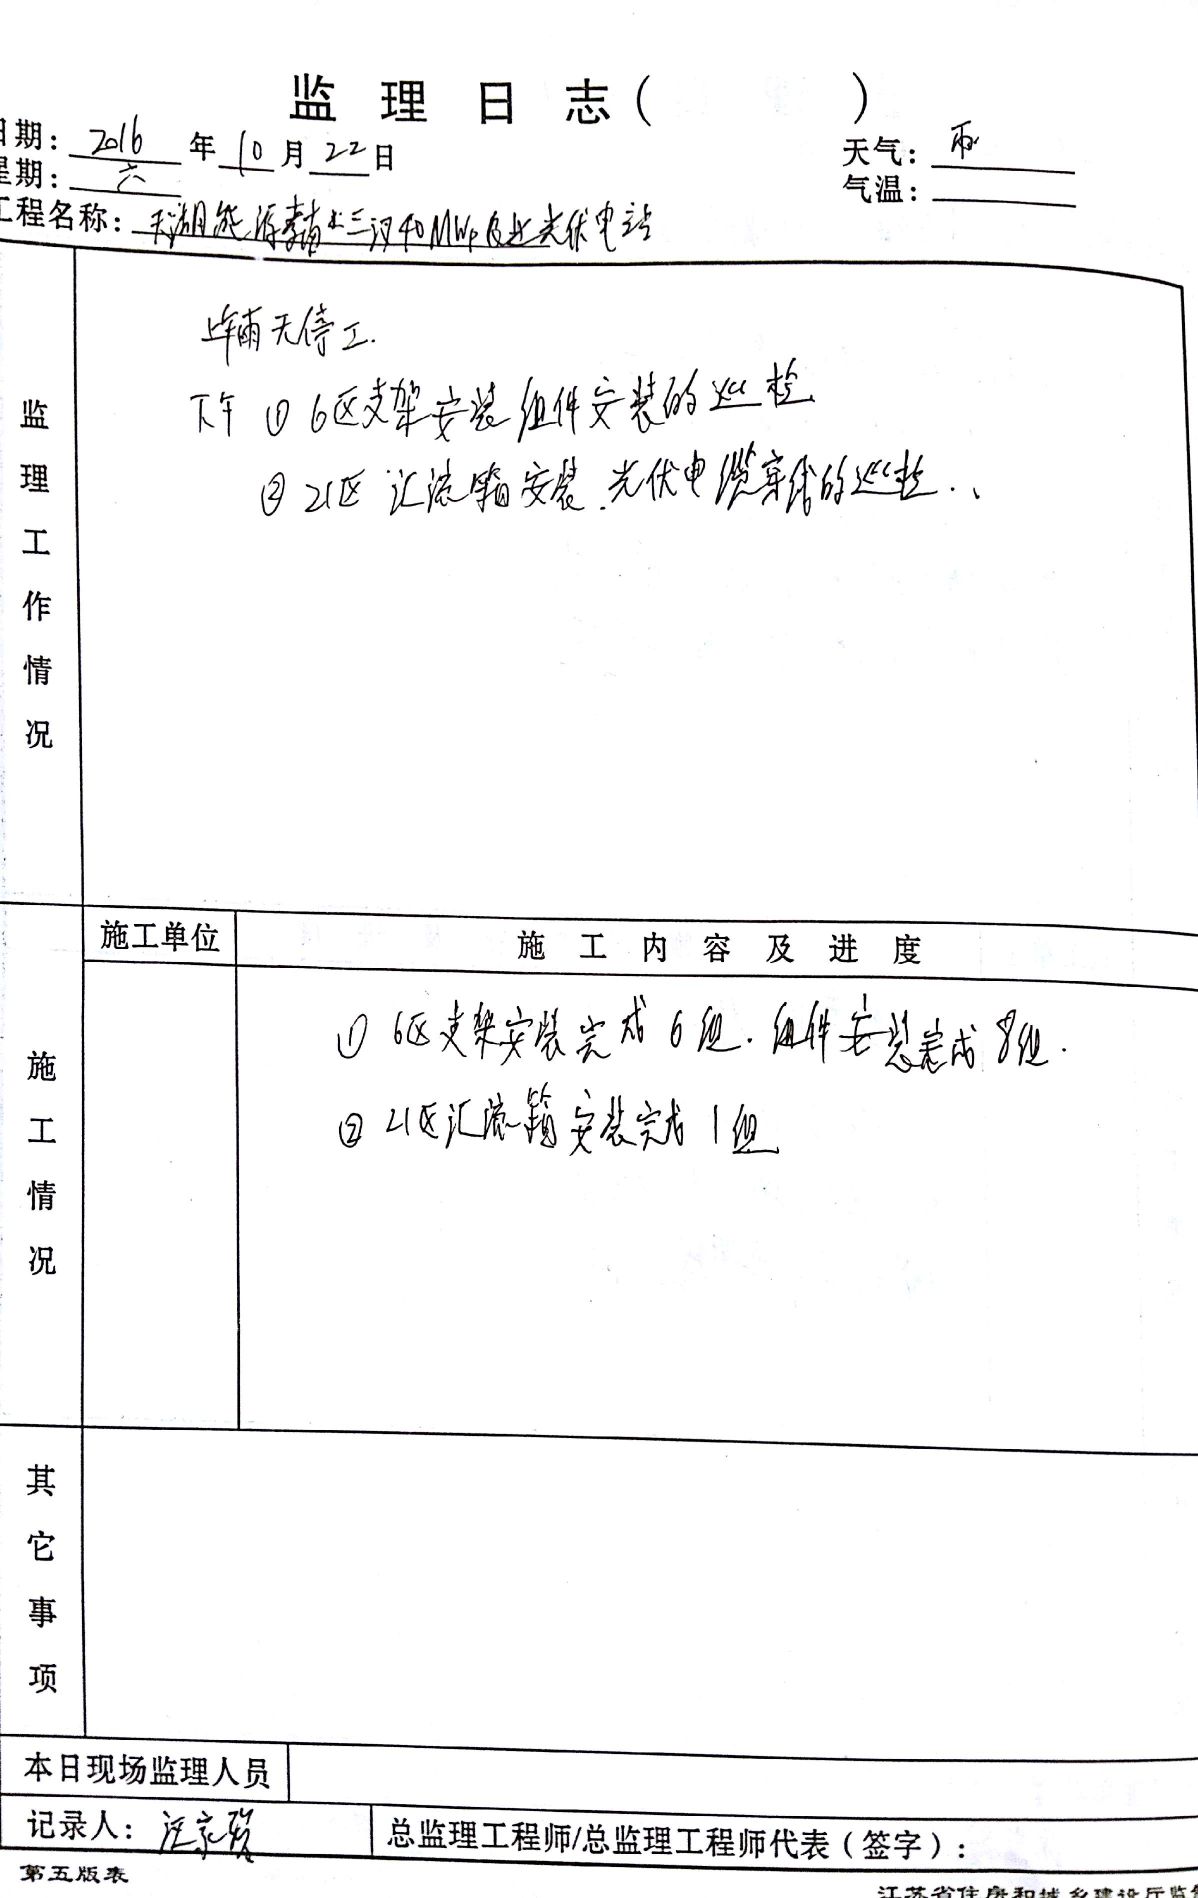 监理日志（ ）
日期：2016年10月22日
天气：雨
星期：六
气温：
工程名称：天湖能源 三汊40MWp 光伏电站
监理工作情况
上午雨天停工.
下午 ① 6区支架安装 组件安装的巡检
② 21区 汇流箱安装.光伏电缆穿线的巡检..
施工单位
施工内容及进度
施工情况
① 6区支架安装完成6组.组件安装完成8组.
② 21区汇流箱安装完成1组
其它事项
本日现场监理人员
记录人：汪家
总监理工程师/总监理工程师代表（签字）：
第五版表
江苏省住房和城乡建设厅监